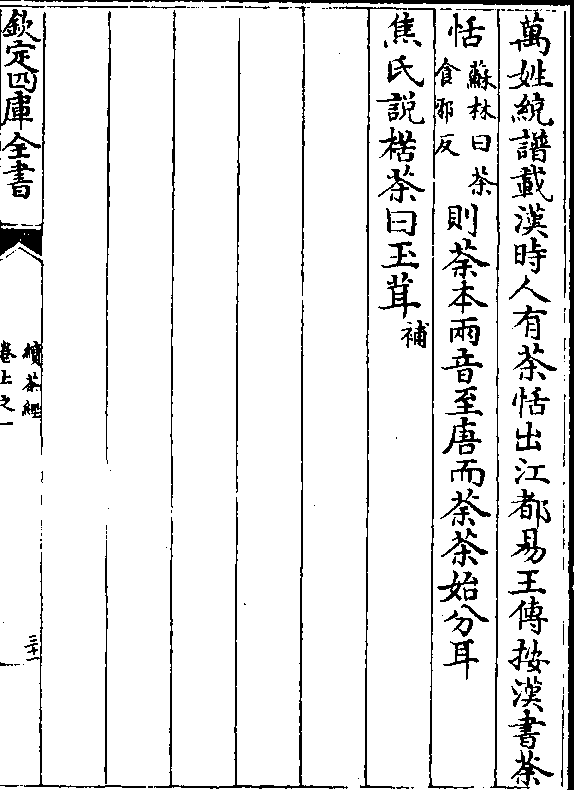 萬姓統譜載漢時人有茶恬出江都易王傳按漢書荼
恬蘇林曰荼食邪反則荼本兩音至唐而荼茶始分耳
焦氏説楛茶曰玉茸補
欽定四庫全書
續茶經
卷上之一